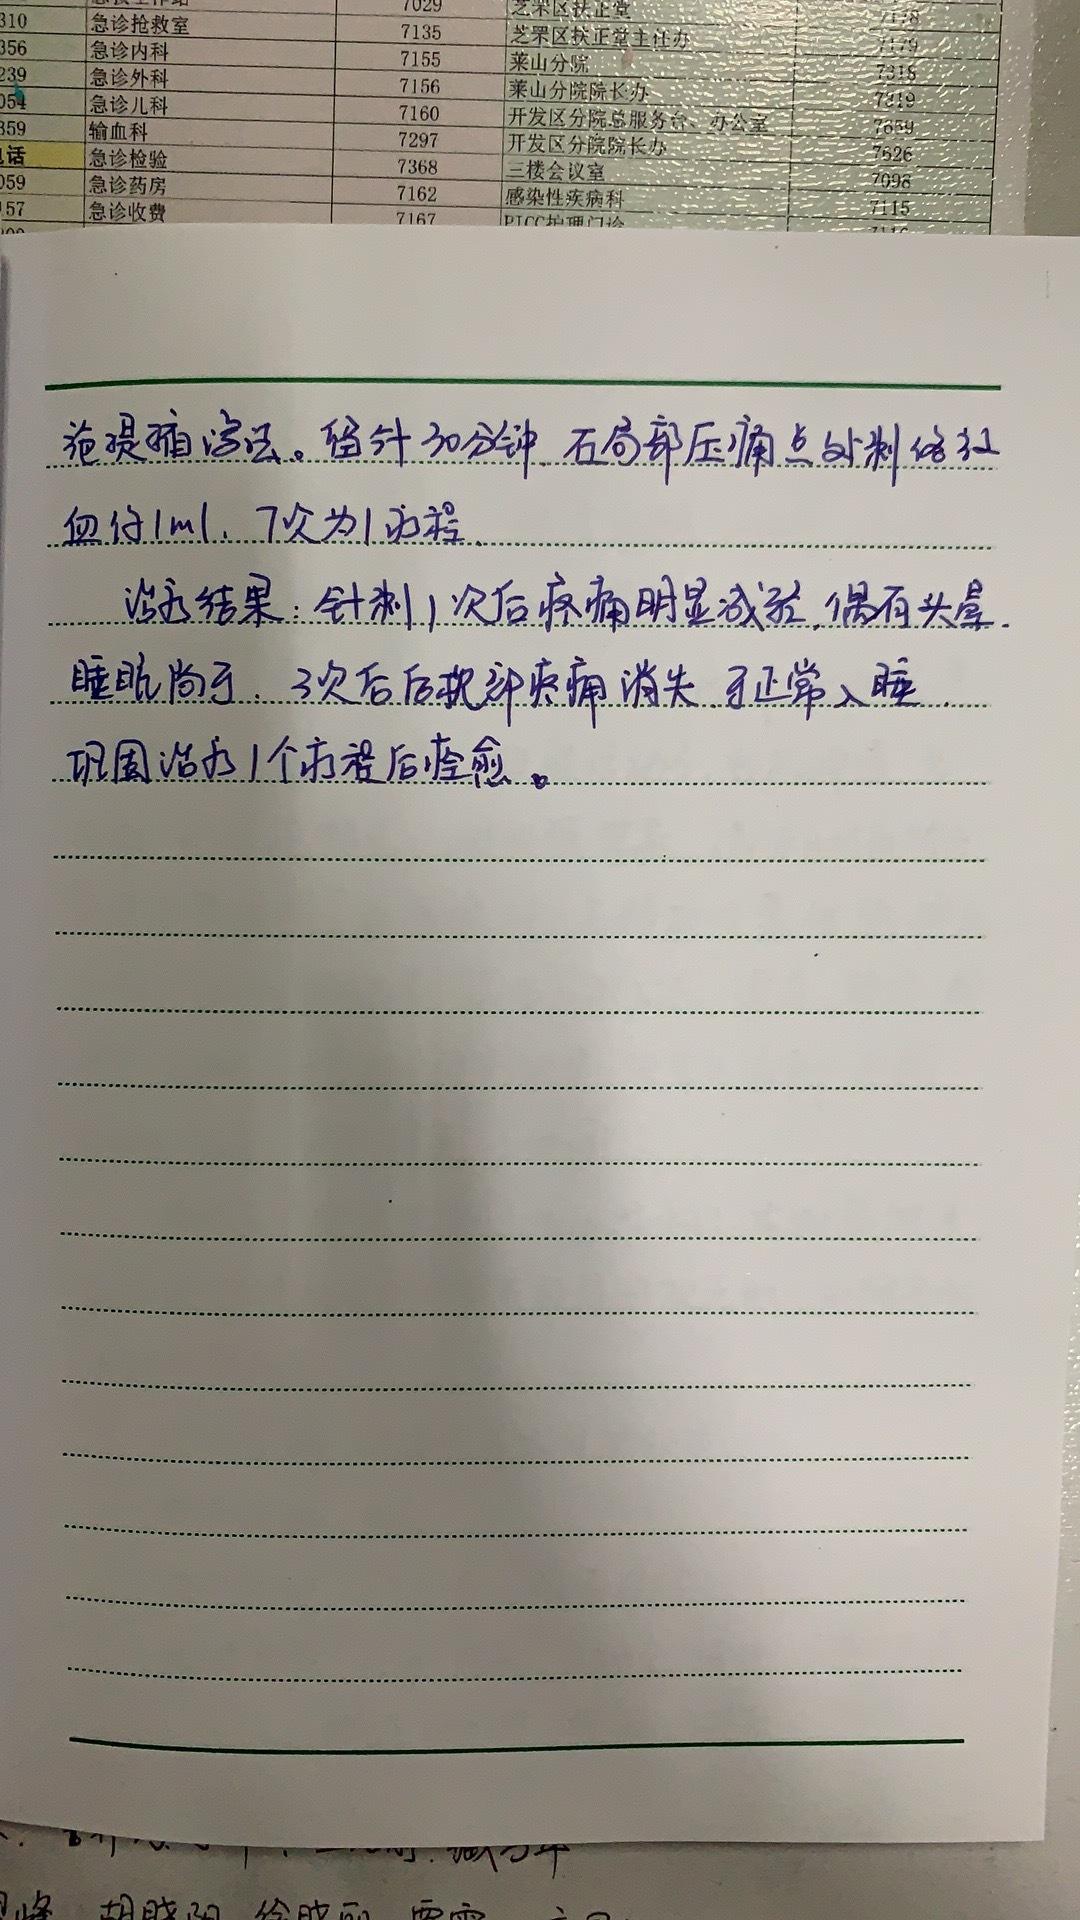 7029 芝罘区扶正堂 7178
310 急诊抢救室 7135 芝罘区扶正堂主任办 7179
356 急诊内科 7155 莱山分院 7318
239 急诊外科 7156 莱山分院院长办 7319
054 急诊儿科 7160 开发区分院总服务台、办公室 7659
359 输血科 7297 开发区分院院长办 7626
话 急诊检验 7368 三楼会议室 7098
059 急诊药房 7162 感染性疾病科 7115
157 急诊收费 7167 PICC护理门诊 7116
施提插泻法。留针30分钟. 在局部压痛点处刺络放
血约1ml. 7次为1疗程.
治疗结果:针刺1次后疼痛明显减轻.偶有头晕.
睡眠尚可. 3次后后枕部疼痛消失.可正常入睡.
巩固治疗1个疗程后痊愈。
胡晓阳